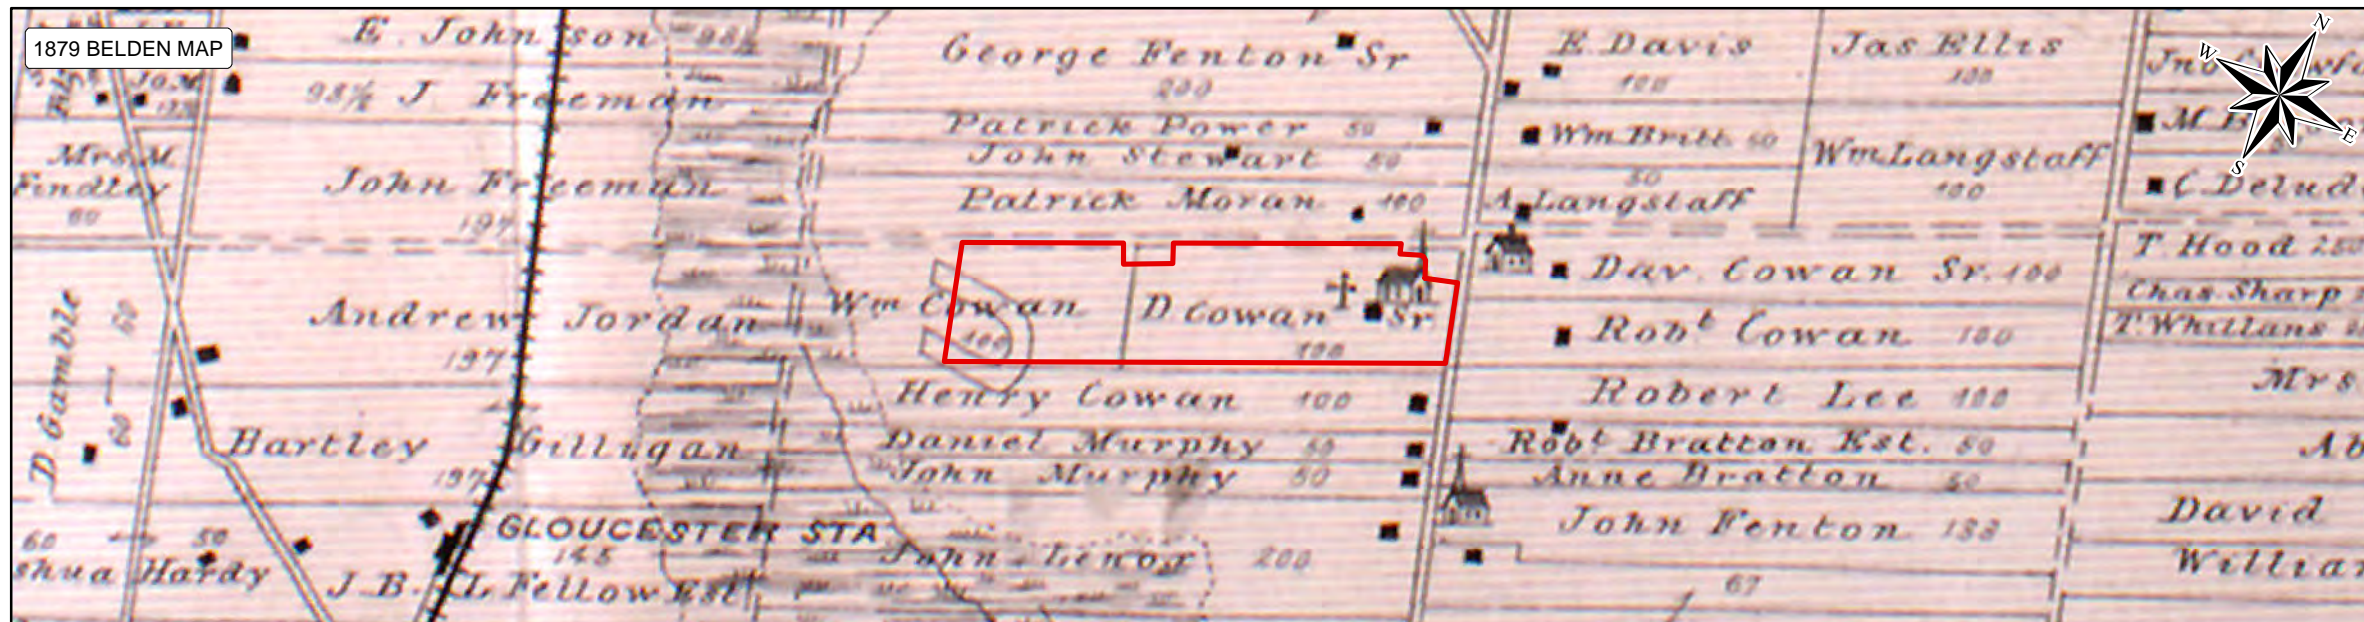 1879 BELDEN MAP
N
W
E
S
E. Johnson 98½
98½ J. Freeman
Jo.M.
Mrs. M.
Findley
60
John Freeman
197
D Gamble
60
60
Andrew Jordan
197
Bartley Gilligan
197
GLOUCESTER STA
145
60
50
shua Hardy
J. B. L. Fellow Est
George Fenton Sr
200
Patrick Power 50
John Stewart 50
Patrick Moran 100
Wm Cowan
100
D Cowan Sr
100
Henry Cowan 100
Daniel Murphy 50
John Murphy 50
John Lenox 200
E. Davis
100
Jas Ellis
100
Wm Britt 50
50
A. Langstaff
Wm Langstaff
100
Dav. Cowan Sr. 100
Robt Cowan 100
Robert Lee 100
Robt Bratton Est. 50
Anne Bratton 50
John Fenton 133
67
Jno
C. Delud
T. Hood 250
Chas. Sharp
T. Whillans
Mrs
Ab
David
William